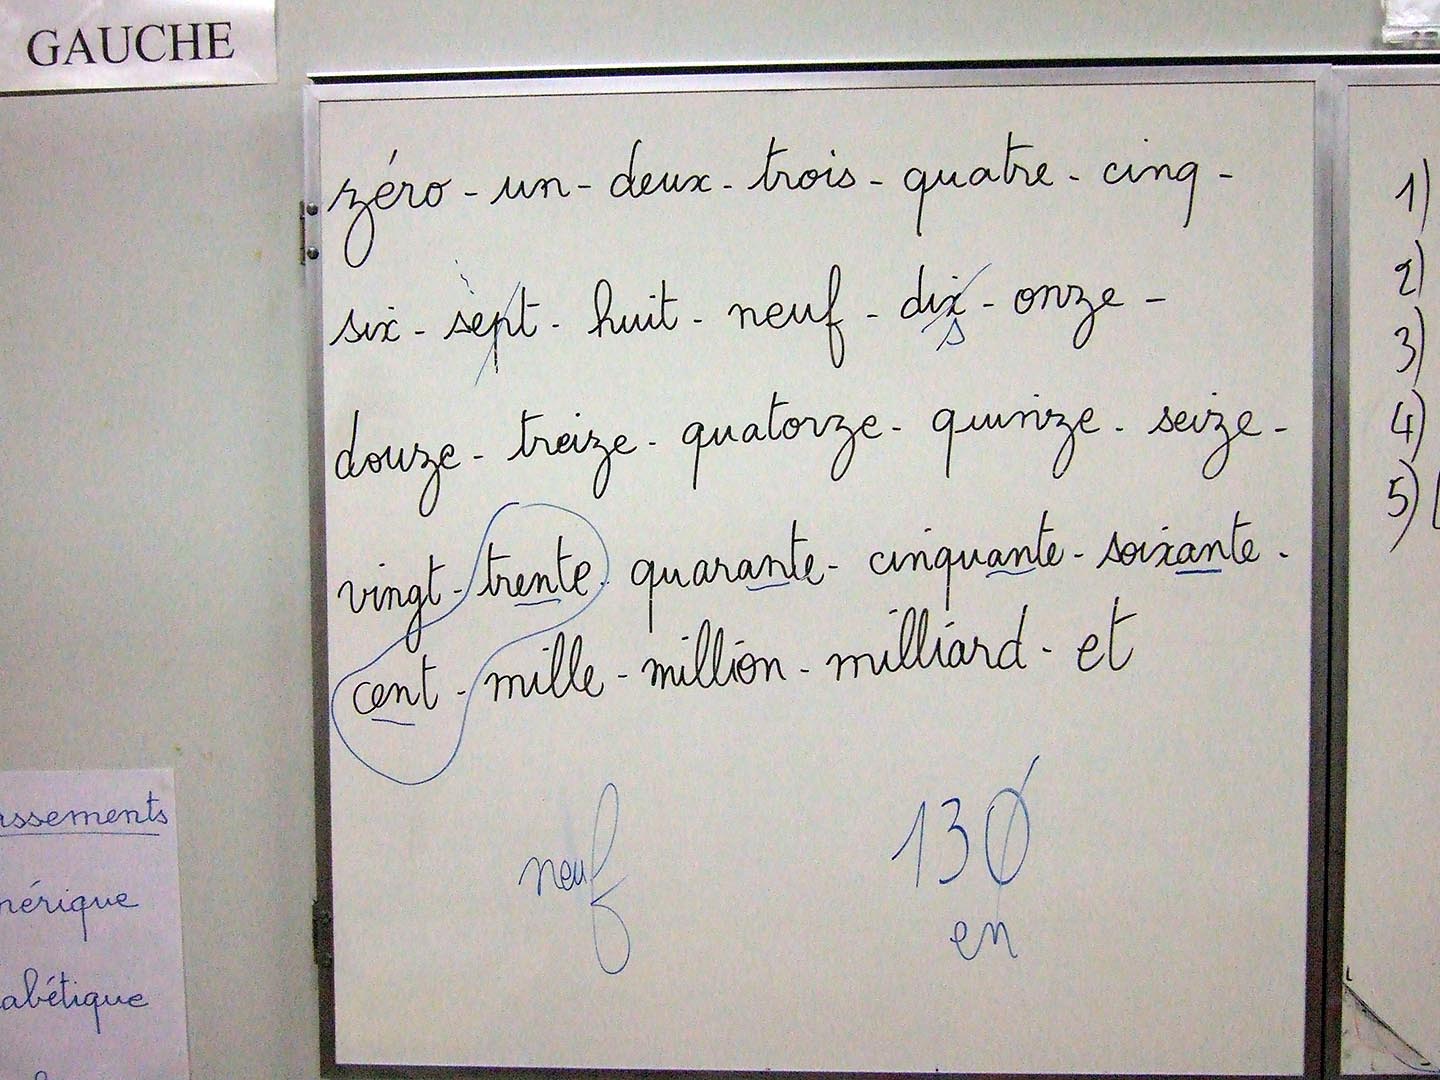 GAUCHE
zéro - un - deux - trois - quatre - cinq -
six - sept - huit - neuf - dix - onze -
s
douze - treize - quatorze - quinze - seize -
vingt - trente - quarante - cinquante - soixante -
cent - mille - million - milliard - et
neuf
130
en
1)
2)
3)
4)
5)
assements
mérique
abétique